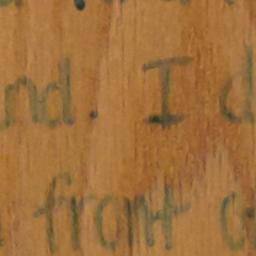 nd. I d
front o